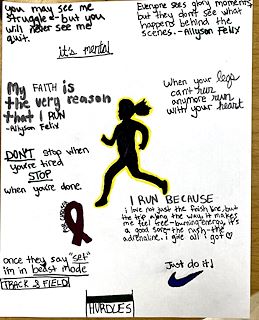 you may see me
struggle - but you
will never see me
quit.
Everyone sees glory moments,
but they don't see what
happened behind the
scenes. - Allyson Felix
it's mental
My FAITH is
the very reason
that I RUN
- Allyson Felix
When your legs
can't run
anymore run
with your heart
DON'T stop when
you're tired
STOP
when you're done.
I RUN BECAUSE
i love not just the finish line, but
the trip along the way, it makes
me feel free - burning energy, it's
a good sore - the rush - the
adrenaline. i give all i got
once they say "set"
i'm in beast mode
TRACK & FIELD
Just do it!
HURDLES